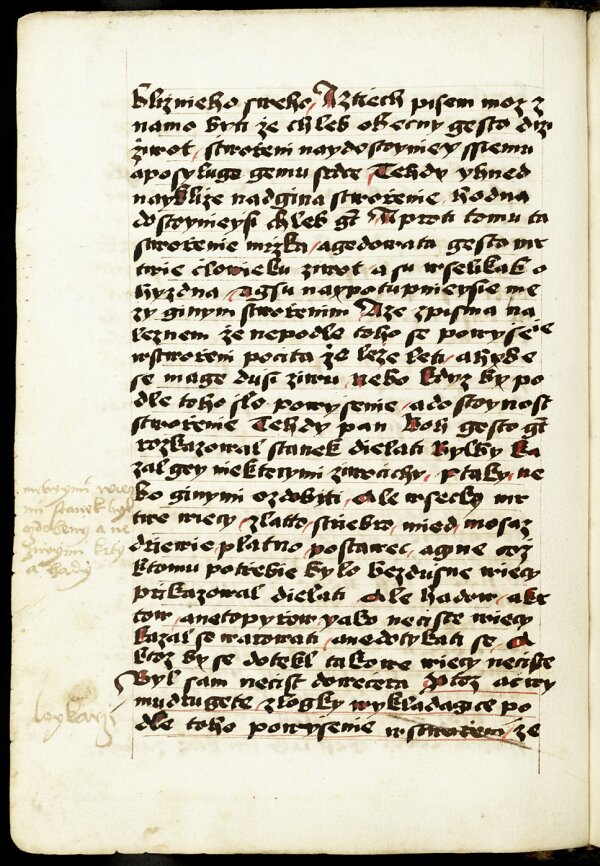 bliznieho sweho / A ztiech pisem moz z
namo byti ze chleb obecny gesto drzi
ziwot / stworzeni naydostoyniey ssiemu
aposyluge gemu srdce / Tehdy yhned
nayblize nad gina stworzenie hodna
dostoynieysi chleb gt A proti tomu ta
stworzenie mrzka / agedowata gesto mr
twie clowieku ziwot a su wselikak o
hyzdna / agsu naypotupnieysie me
zy ginym stworzenim A ze zpisma na
leznem ze nepodle toho se powysenie
wstworzeni pocita ze leze leti / ahybe
se mage dusi ziwu nebo kdyz by po
dle toho slo powysenie / adostoynost
stworzenie Tehdy pan Boh gesto gt
rozkazowal stanek dielati Bylby ka
zal gey niekterymi zwierzichy / ptaky ne
bo ginymi ozdobiti / Ale wsecky mr
twe wiecy / zlatto striebro / mied / mosaz
drziewie platno postawec / agine coz
ktomu potrzebie bylo bezdusne wiecy
przikazowal dielati Ale hadow / a kre
tow / anetopyrow yako neciste wiecy
kazal se warowati / anedotykati se / A
ktoz by se dotekl takowe wiecy neciste
Byl sam necist dowecera Protoz aczwy
mudrugete / zlogky wykladagice po
dle toho powysenie wstworzeni / ze
mrtwymi wiecz
mi stanek byl
ozdobeny a ne
ziwymi krty
a hady
loykarzi